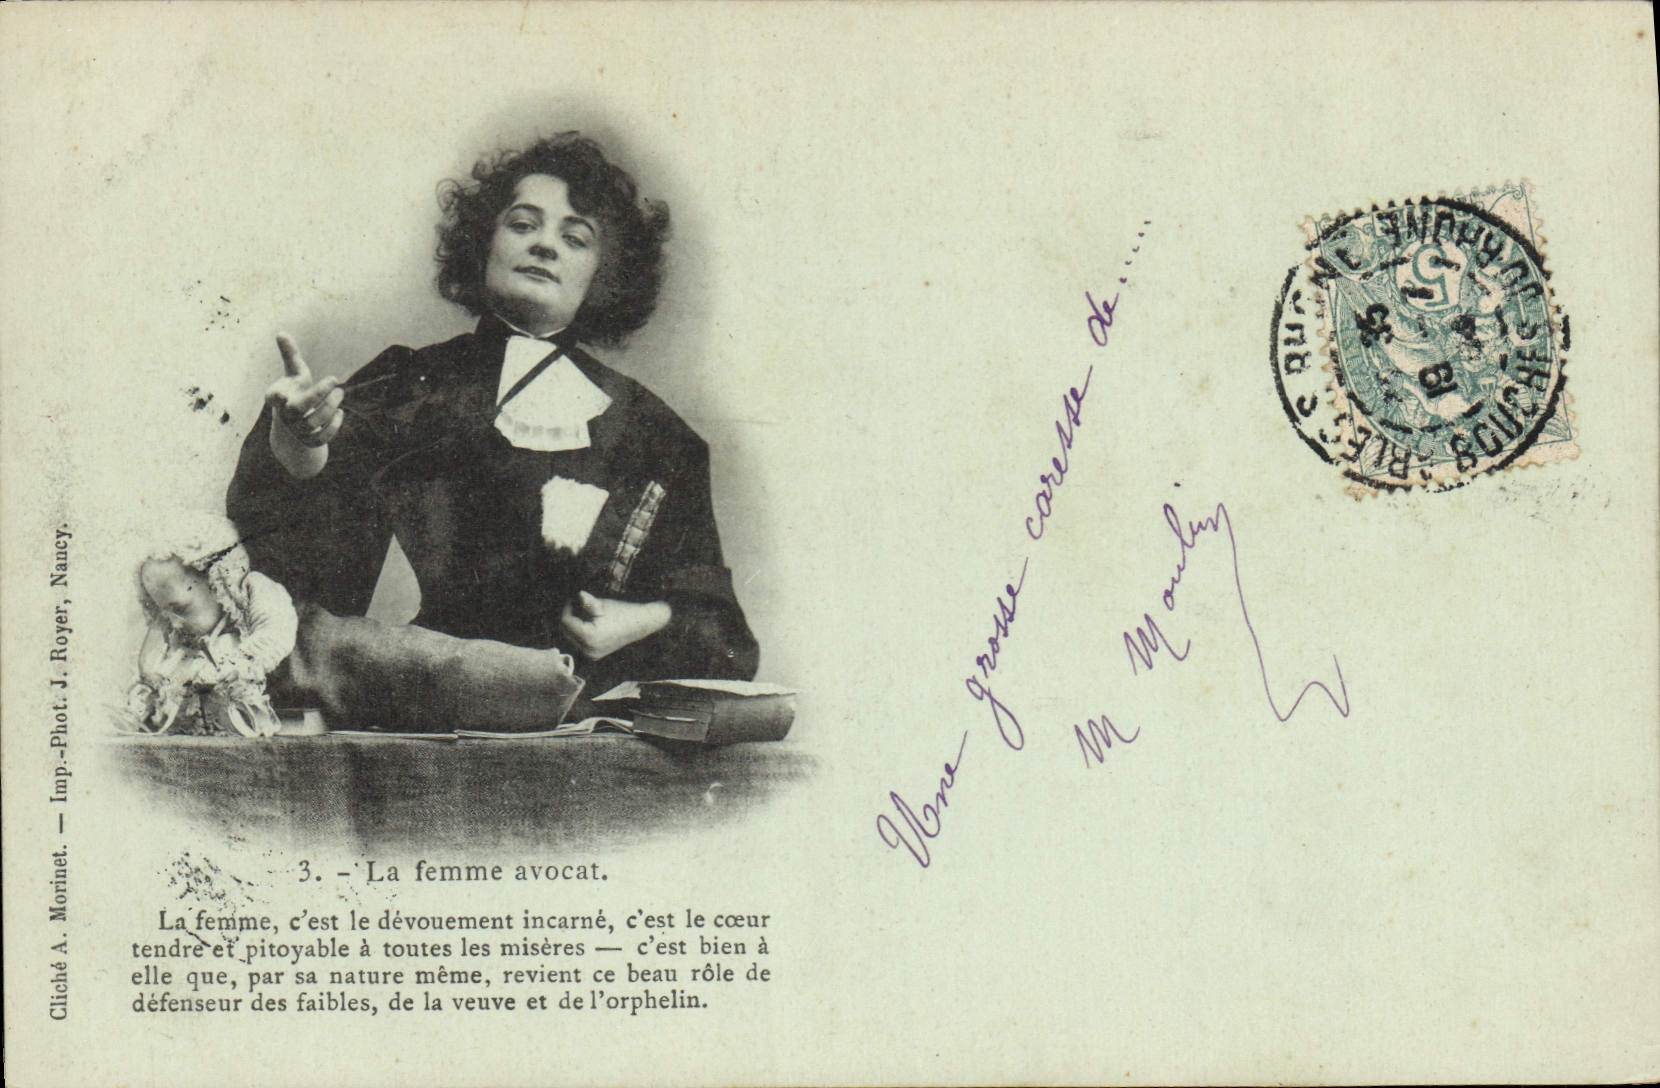 Cliché A. Morinet. — Imp.-Phot. J. Royer, Nancy.
3. — La femme avocat.
La femme, c'est le dévouement incarné, c'est le cœur
tendre et pitoyable à toutes les misères — c'est bien à
elle que, par sa nature même, revient ce beau rôle de
défenseur des faibles, de la veuve et de l'orphelin.
Une grosse caresse de.....
M Moulin
5
BOUCHES DU RHONE